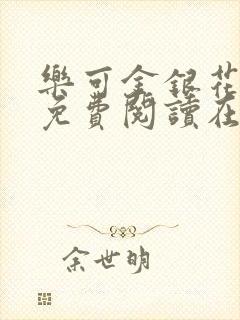 樂可金銀花
免費閱讀在
余世明